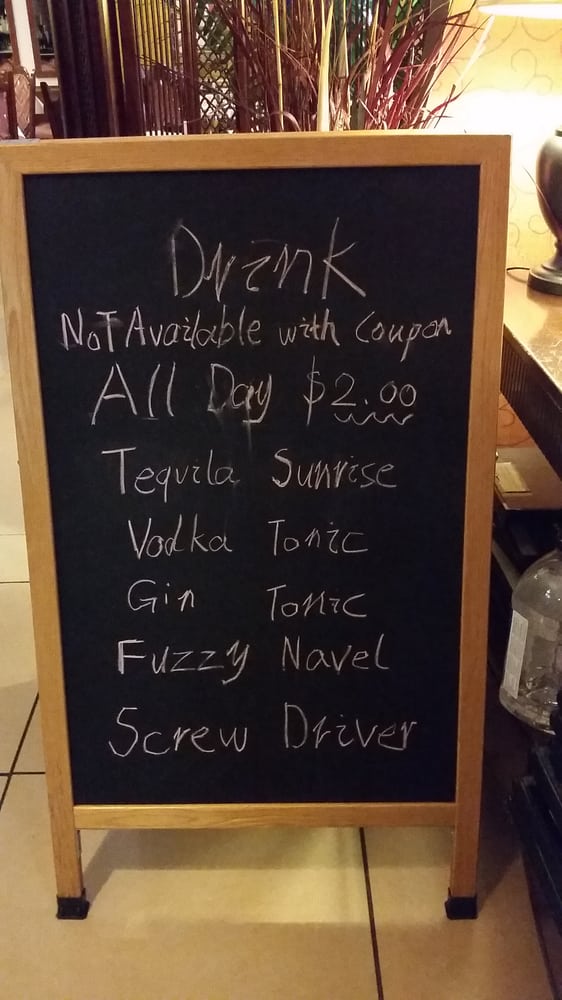 Drink
Not Available with Coupon
All Day $2.00
Tequila Sunrise
Vodka Tonic
Gin Tonic
Fuzzy Navel
Screw Driver